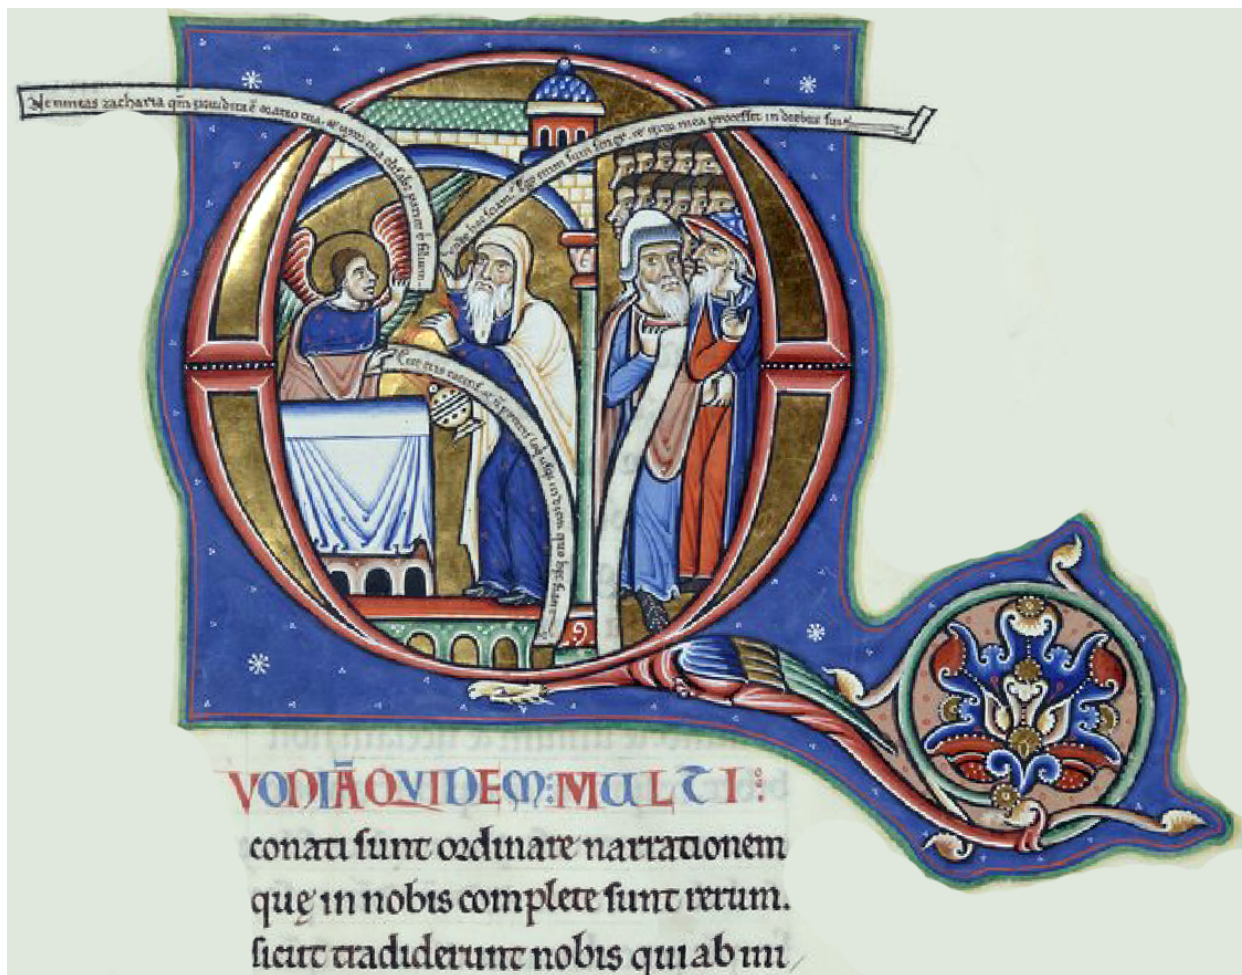 Ne timeas zacharia qm̄ exaudita ē oratio tua. et uxor tua elisabe pariet t̄ filium.
Unde hoc sciam. Ego enim sum senex. et uxor mea processit in diebus suis
Ecce eris tacens. et n̄ poteris loqui usq; in diem quo hec fiant
VONIĀ QVIDEM: MULTI:
conati sunt ordinare narrationem
quę in nobis complete sunt rerum.
sicut tradiderunt nobis qui ab ini